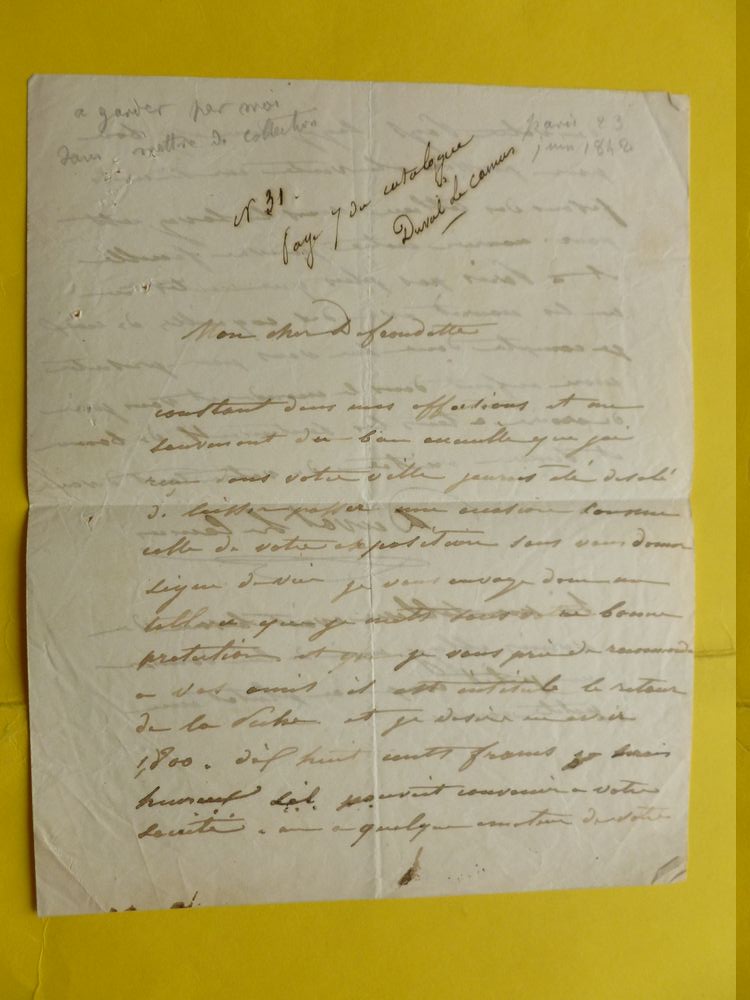 a garder par moi
dans mettre de collection
paris 23
juin 1842
N 31.
page 7 du catalogue
Duval Le camus
Mon cher
constant dans mes affections et au
souvenont du bon accueille que jai
reçu dans votre ville jaurois été désolé
de laisser passer une occasion comme
celle de votre exposition sans vous donner
signe de vie je vous envoye donc un
tableau que je mets sous votre bonne
protection et que je vous prie de recommander
a vos amis il est intitulé le retour
de la Pêche et je desire en avoir
1,800. dix huit cents francs je serais
heureux sil pouvoit convenir a votre
société. ou a quelque amateur de votre